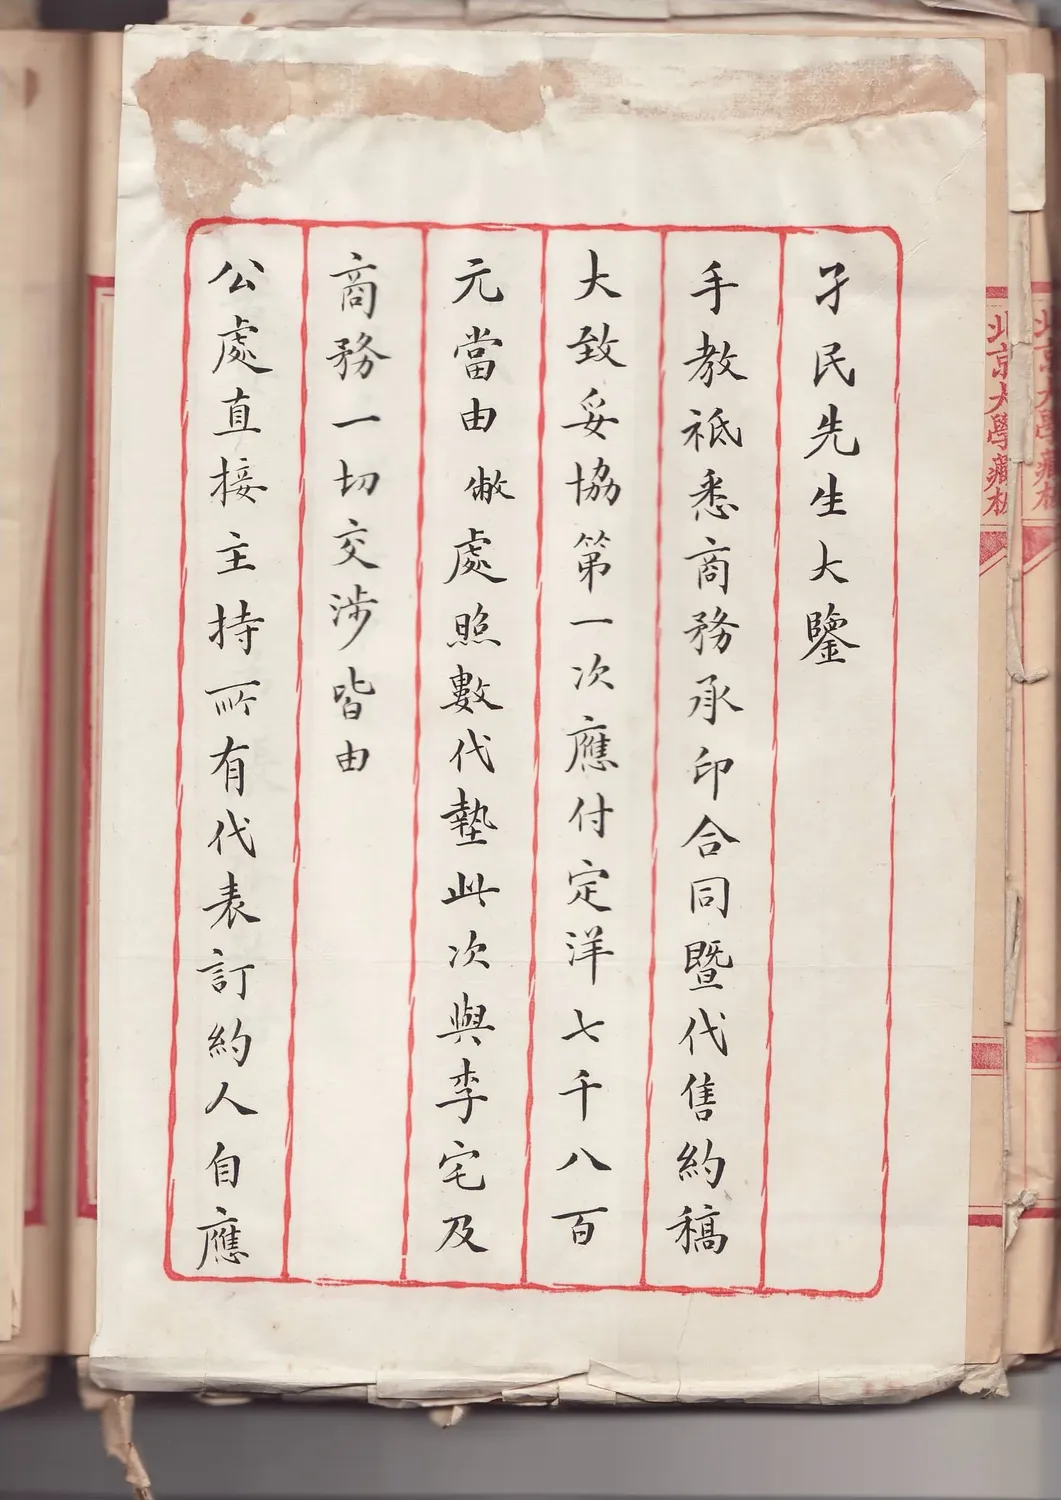 孑民先生大鑒
手教祗悉商務承印合同暨代售約稿
大致妥協第一次應付定洋七千八百
元當由敝處照數代墊此次與李宅及
商務一切交涉皆由
公處直接主持所有代表訂約人自應
北京大學藏
北京大學藏